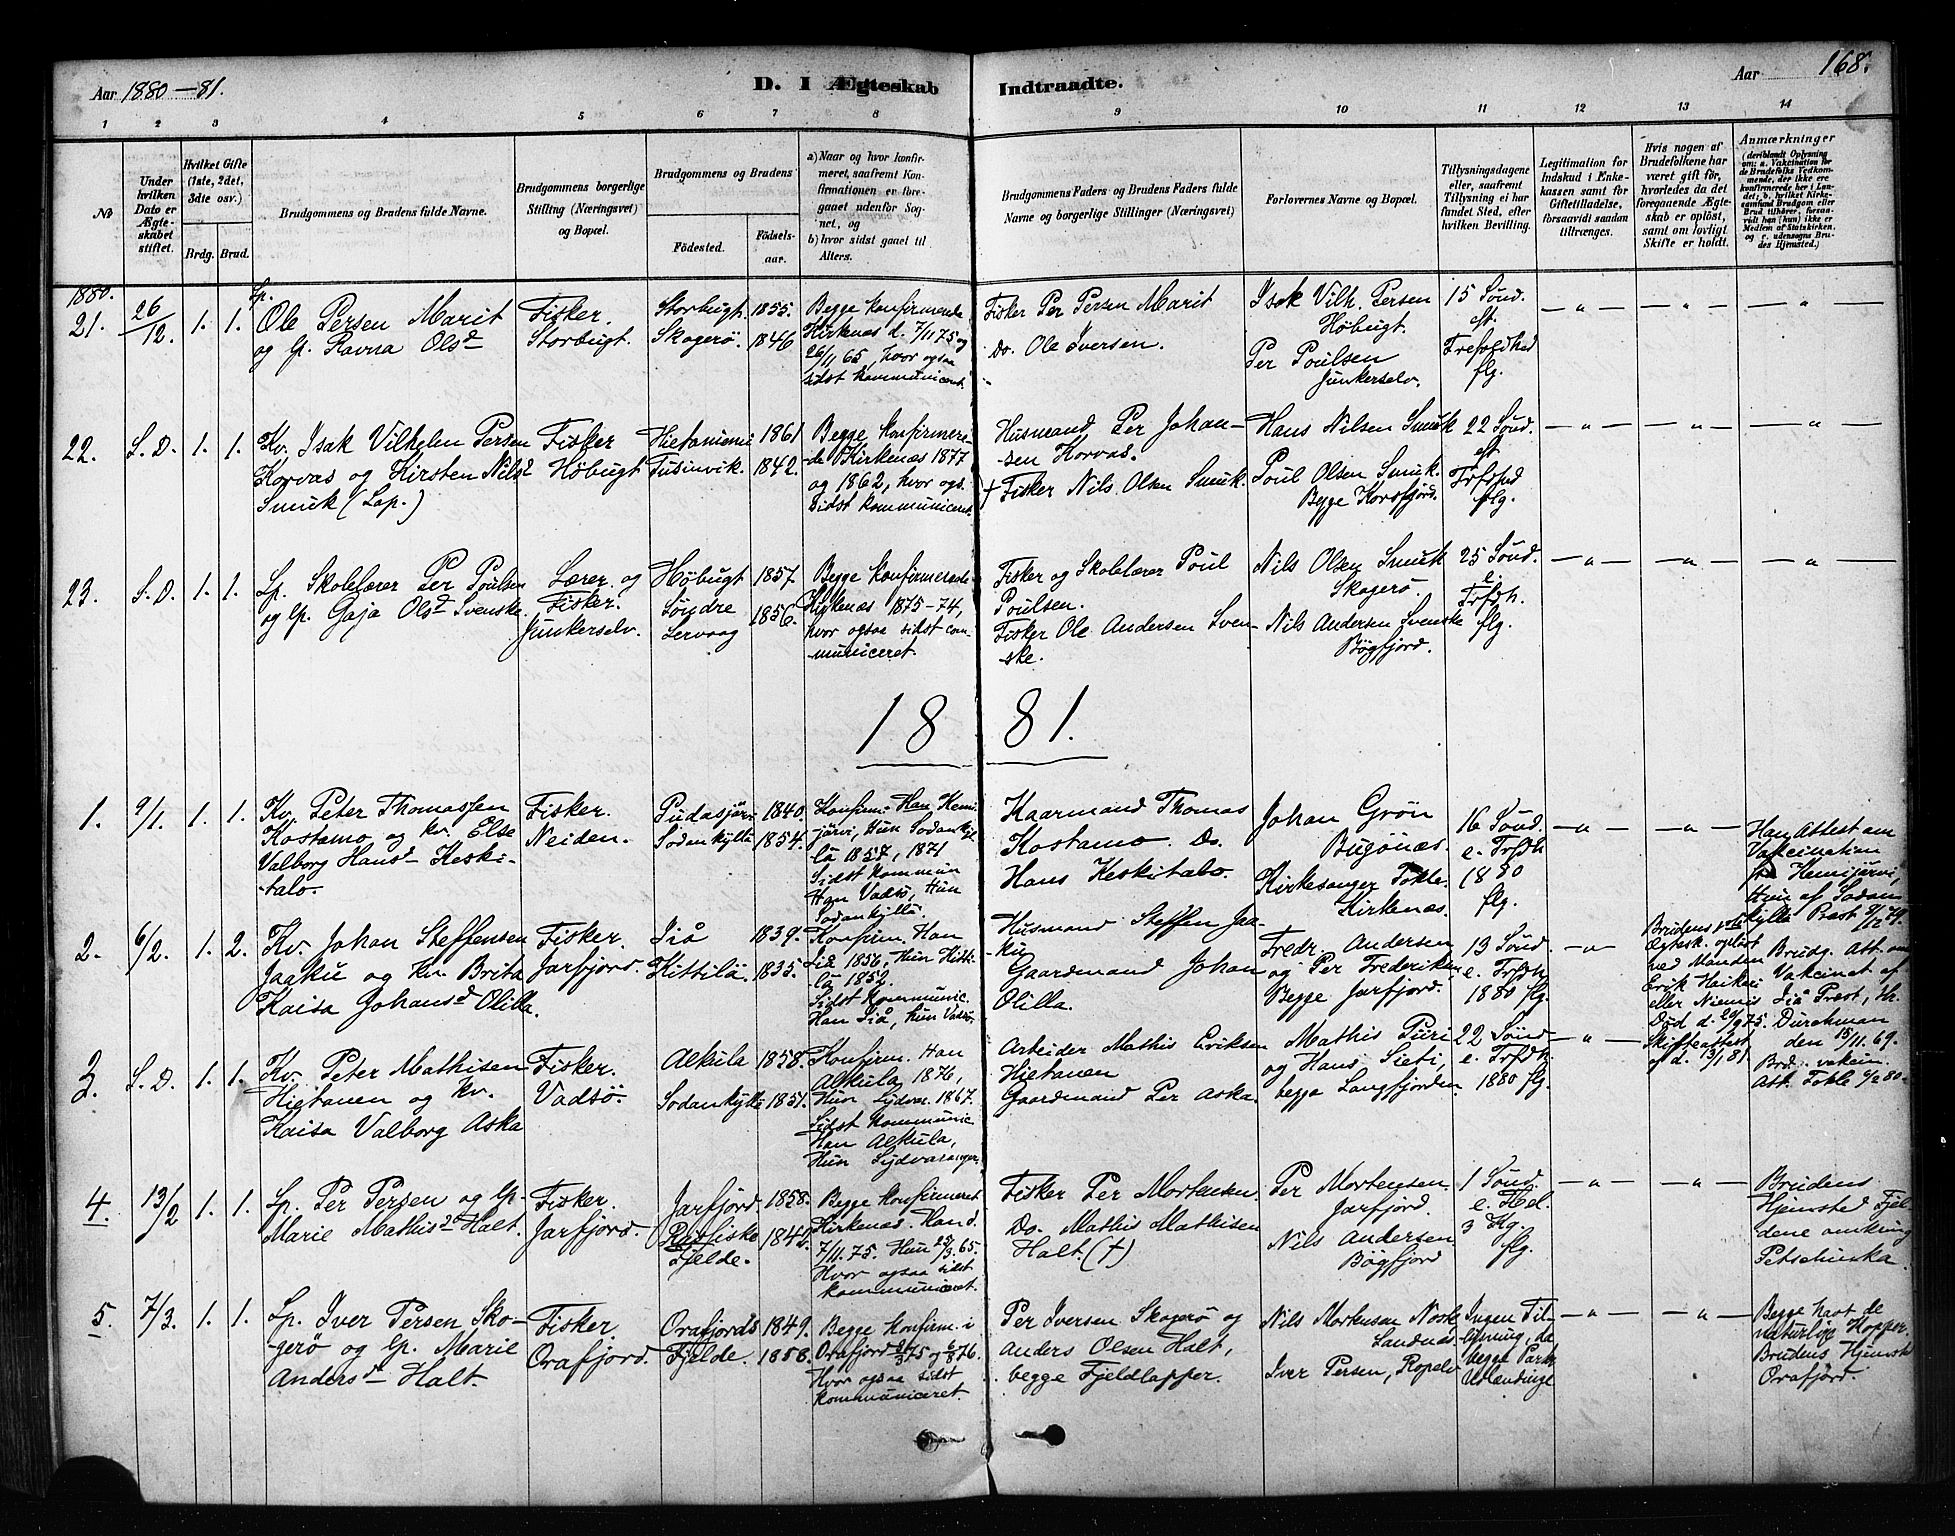 Aar 1880–81.
D. I Ægteskab
Indtraadte.
Aar 168.
1
2
3
4
5
6
7
8
9
10
11
12
13
14
No
Under
hvilken
Dato er
Ægte-
skabet
stiftet.
Hvilket Gifte
(1ste, 2det,
3die osv.)
Brdg.
Brud.
Brudgommens og Brudens fulde Navne.
Brudgommens borgerlige
Stilling (Næringsvei)
og Bopæl.
Brudgommens og Brudens
Fødested.
Fødsels-
aar.
a) Naar og hvor konfir-
meret, saafremt Kon-
firmationen er fore-
gaaet udenfor Sog-
net, og
b) hvor sidst gaaet til
Alters.
Brudgommens Faders og Brudens Faders fulde
Navne og borgerlige Stillinger (Næringsvei)
Forlovernes Navne og Bopæl.
Tillysningsdagene
eller, saafremt
Tillysning ei har
fundet Sted, efter
hvilken Bevilling.
Legitimation for
Indskud i Enke-
kassen samt for
Giftetilladelse,
forsaavidt saadan
tiltrænges.
Hvis nogen af
Brudefolkene har
været gift før,
hvorledes da det
foregaaende Ægte-
skab er opløst,
samt om lovligt
Skifte er holdt.
Anmærkninger
(deriblandt Oplysning
om: a. Vakcination for
de Brudefolks Vedkom-
mende, der ikke ere
konfirmerede her i Lan-
det; b. hvilket Kirke-
samfund Brudgom eller
Brud tilhører, forsaa-
vidt han (hun) ikke er
Medlem af Statskirken,
og c. udensogns Bru-
des Hjemsted.)
1880.
21.
26/12.
1.
1.
Lp.
Ole Persen Marit
og lp. Ravna Olsd
Fisker.
Storbugt.
Storbugt.
Skogerö.
1855.
1846
Begge konfirmerede
Kirkenæs d. 7/11 75 og
26/11 65, hvor ogsaa
sidst kommuniceret.
Fisker Per Persen Marit
Do. Ole Iversen.
Isak Vilh. Persen
Höbugt.
Per Poulsen
Junkerselv.
15 Sönd.
eft.
Trefoldhed
flg.
– " –
– " –
– " –
22.
S. D.
1.
1.
Kv. Isak Vilhelm Persen
Korvas og Kirsten Nilsd
Smuk (Lap.)
Fisker
Höbugt
Hietaniemi
1861
1842.
Begge konfirmere-
de Kirkenæs 1877
og 1862, hvor ogs.
sidst kommuniceret.
Husmand Per Johan-
sen Korvas.
† Fisker Nils Olsen Smuk.
Hans Nilsen Smuk
Poul Olsen Smuk.
Begge Korsfjord.
22 Sönd.
eft
flg.
– " –
– " –
– " –
23.
S. D.
1.
1.
Lp. Skolelærer Per Poulsen
og lp. Gaja Olsd Svenske
Lærer og
Fisker.
Junkerselv.
Höbugt
Söndre
Lervaag
1857.
1856.
Begge konfirmerede
Kirkenæs 1875–74,
hvor ogsaa sidst com-
municeret.
Fisker og Skolelærer Poul
Poulsen.
Fisker Ole Andersen Sven-
ske.
Nils Olsen Smuk
Skogerö.
Nils Andersen Svenske
Bögfjord.
25 Sönd.
e.
Trfdh.
flg.
– " –
– " –
– " –
1881.
1.
9/1.
1.
1.
Kv. Peter Thomassen
Kostamo og kv. Else
Valborg Hansd Keski-
talo.
Fisker.
Neiden.
Pudasjärvi
Sodankylä
1840.
1854.
Konfirm. Han Kemi-
järvi, Hun Sodanky-
lä 1857, 1871
Sidst kommun
Han Vadsö, Hun
Sodankylä.
Kaarmand Thomas
Kostamo. Do.
Hans Keskitalo.
Johan Grön
Bugönæs.
Kirkesanger Tokle.
Kirkenæs.
16 Sönd.
e. Trfdh
1880
flg.
– " –
– " –
Han Attest om
Vakcination
fra Kemijärvi,
Hun af Sodan-
kylä Præst 9/12 79.
2.
6/2.
1.
2.
Kv. Johan Steffensen
Jaaku og kv. Brita
Kaisa Johansd Olilla.
Fisker.
Jarfjord.
Iiå
Kittilä
1839.
1835.
Konfirm. Han
Iiå 1856, Hun Kitti-
lä 1852.
Sidst kommunic.
Han Iiå, hun Vadsö.
Husmand Steffen Jaa-
ku
Gaardmand Johan
Olilla.
Fredr. Andersen
og Per Frederiksen
Begge Jarfjord.
13 Sönd.
e. Trfdh.
1880 flg.
– " –
Brudens
Ægtesk. oplöst
ved Manden
Erik Haikai
eller Niemis
Död d. 29/9 75.
Skifteattest
af d. 13/1 81.
Brudg. Att. om
Vakcinat. af
Iiå Præst, Hr.
Durchman
den 15/11 69.
Brd. vakcin.
Att. Tokle 6/2 80.
3.
S. D.
1.
1.
Kv. Peter Mathisen
Hietanen og kv.
Kaisa Valborg Aska
Fisker.
Vadsö.
Alkula
Sodankylä
1858.
1851.
Konfirm. Han
Alkula, 1876,
Hun Sydvar. 1867.
Sidst kommunic
Han Alkula,
Hun Sydvaranger.
Arbeider Mathis Eriksen
Hietanen
Gaardmand Per Aska.
Mathis Puri
og Hans Sieti,
begge Langfjorden
22 Sönd
e. Trfdh.
1880 flg.
– " –
4.
13/2
1.
1.
Lp. Per Persen og lp.
Marie Mathisd Halt.
Fisker.
Jarfjord.
Jarfjord.
Fjelde.
1858.
1842
Begge konfirmeret
Kirkenæs. Han d.
7/11. 75. Hun 25/3. 65.
Hvor ogsaa sidst
kommuniceret.
Fisker Per Mortensen.
Do. Mathis Mathisen
Halt. (†)
Per Mortensen.
Jarfjord.
Nils Andersen.
Bögfjord
1 Sönd.
e. Hel.
3 Kg.
flg.
– " –
– " –
Brudens
Hjemsted Fjel-
dene omkring
Petschinka.
5.
7/3.
1.
1.
Lp. Iver Persen Sko-
gerö og lp. Marie
Andersd Halt.
Fisker.
Orafjord.
Orafjords
Fjelde.
1849.
1858.
Begge konfirm. i
Orafjord
Hvor ogsaa sidst
kommuniceret.
Per Iversen Skogerö og
Anders Olsen Halt,
begge Fjeldlapper.
Nils Mortensen Nork
Sandnæs.
Iver Persen, Ropelv
Ingen Til-
lysning, da
begge Parter
Udlændinge
– " –
– " –
Begge havt de
naturlige Kopper.
Brudens Hjemsted
Orafjord.